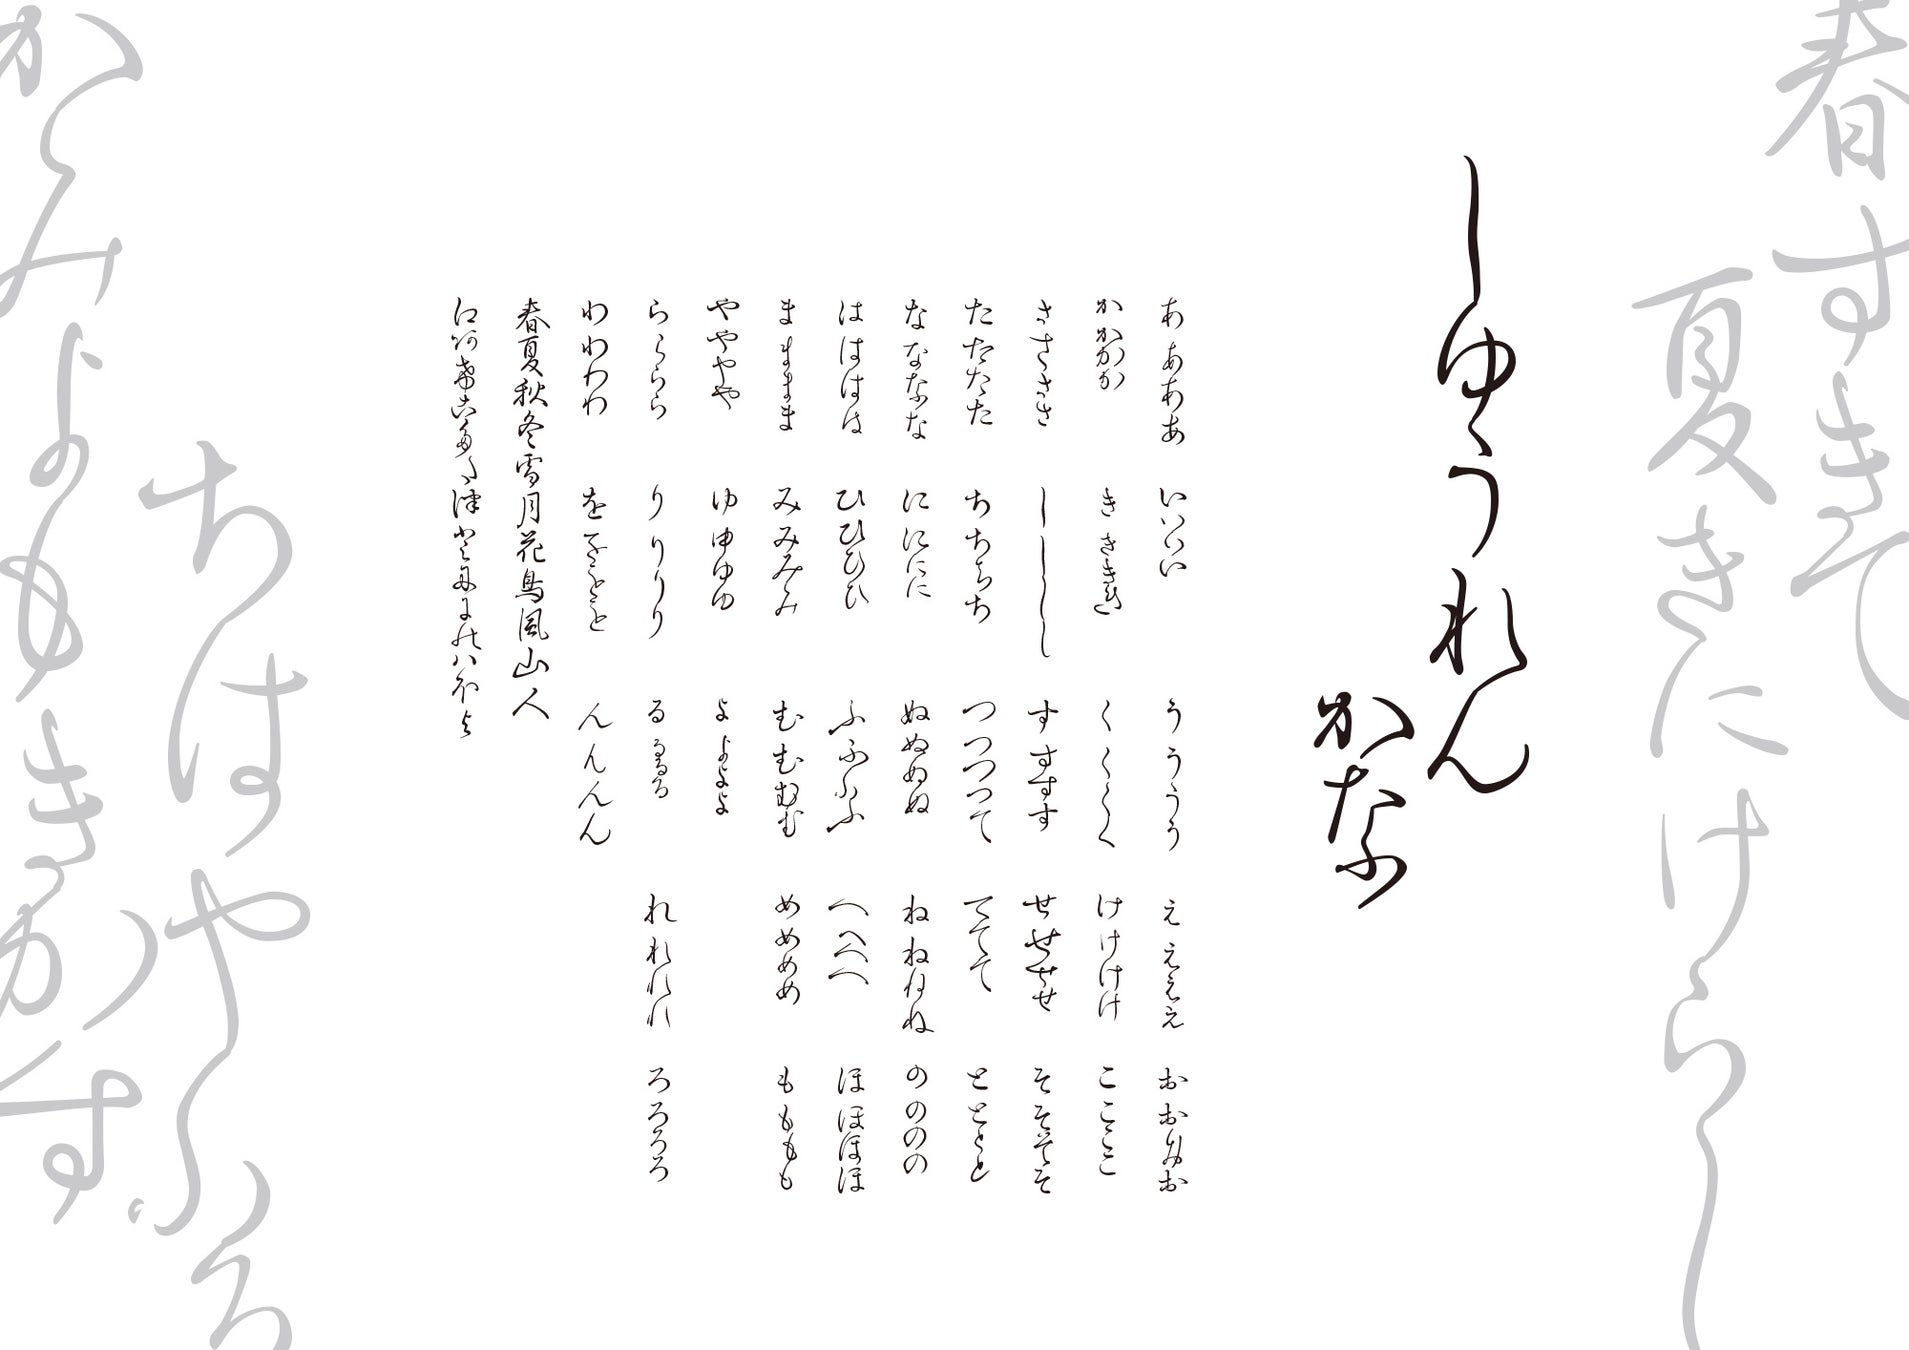 春すきて
夏きにけらし
しゆうれん
かな
ああああ いいいい うううう ええええ おおおお
かかかか きききき くくくく けけけけ ここここ
ささささ しししし すすすす せせせせ そそそそ
たたたた ちちちち つつつつて てててて とととと
なななな にににに ぬぬぬぬ ねねねね のののの
はははは ひひひひ ふふふふ へへへへ ほほほほ
まままま みみみみ むむむむ めめめめ もももも
やややや ゆゆゆゆ よよよよ
らららら りりりり るるるる れれれれ ろろろろ
わわわわ をををを んんんん
春夏秋冬雪月花鳥風山人
ちはやふる
かみよもきかす